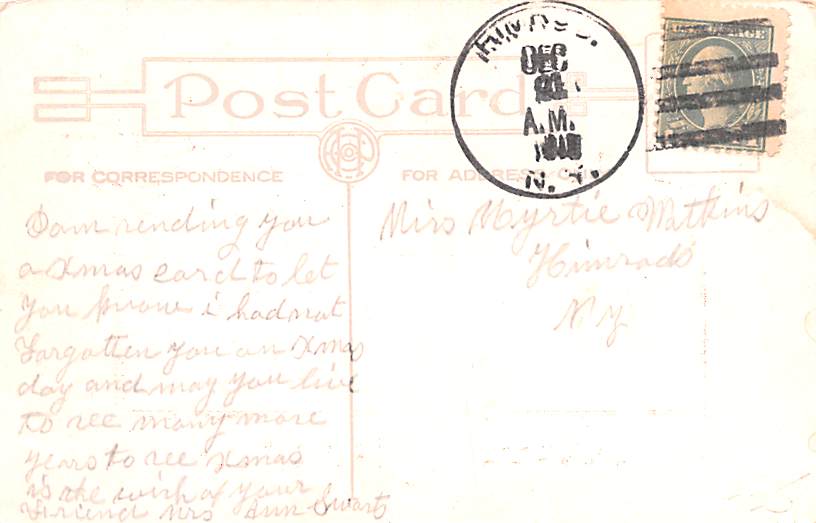 Post Card
DEC
A.M.
N. Y.
FOR CORRESPONDENCE
FOR ADDRESS
I am sending you
a Xmas card to let
you know i had not
Forgotten you on Xmas
day and may you live
to see many more
years to see Xmas
is the wish of your
Friend Mrs Ann Swarts
Miss Myrtie Watkins
Himrods
N Y